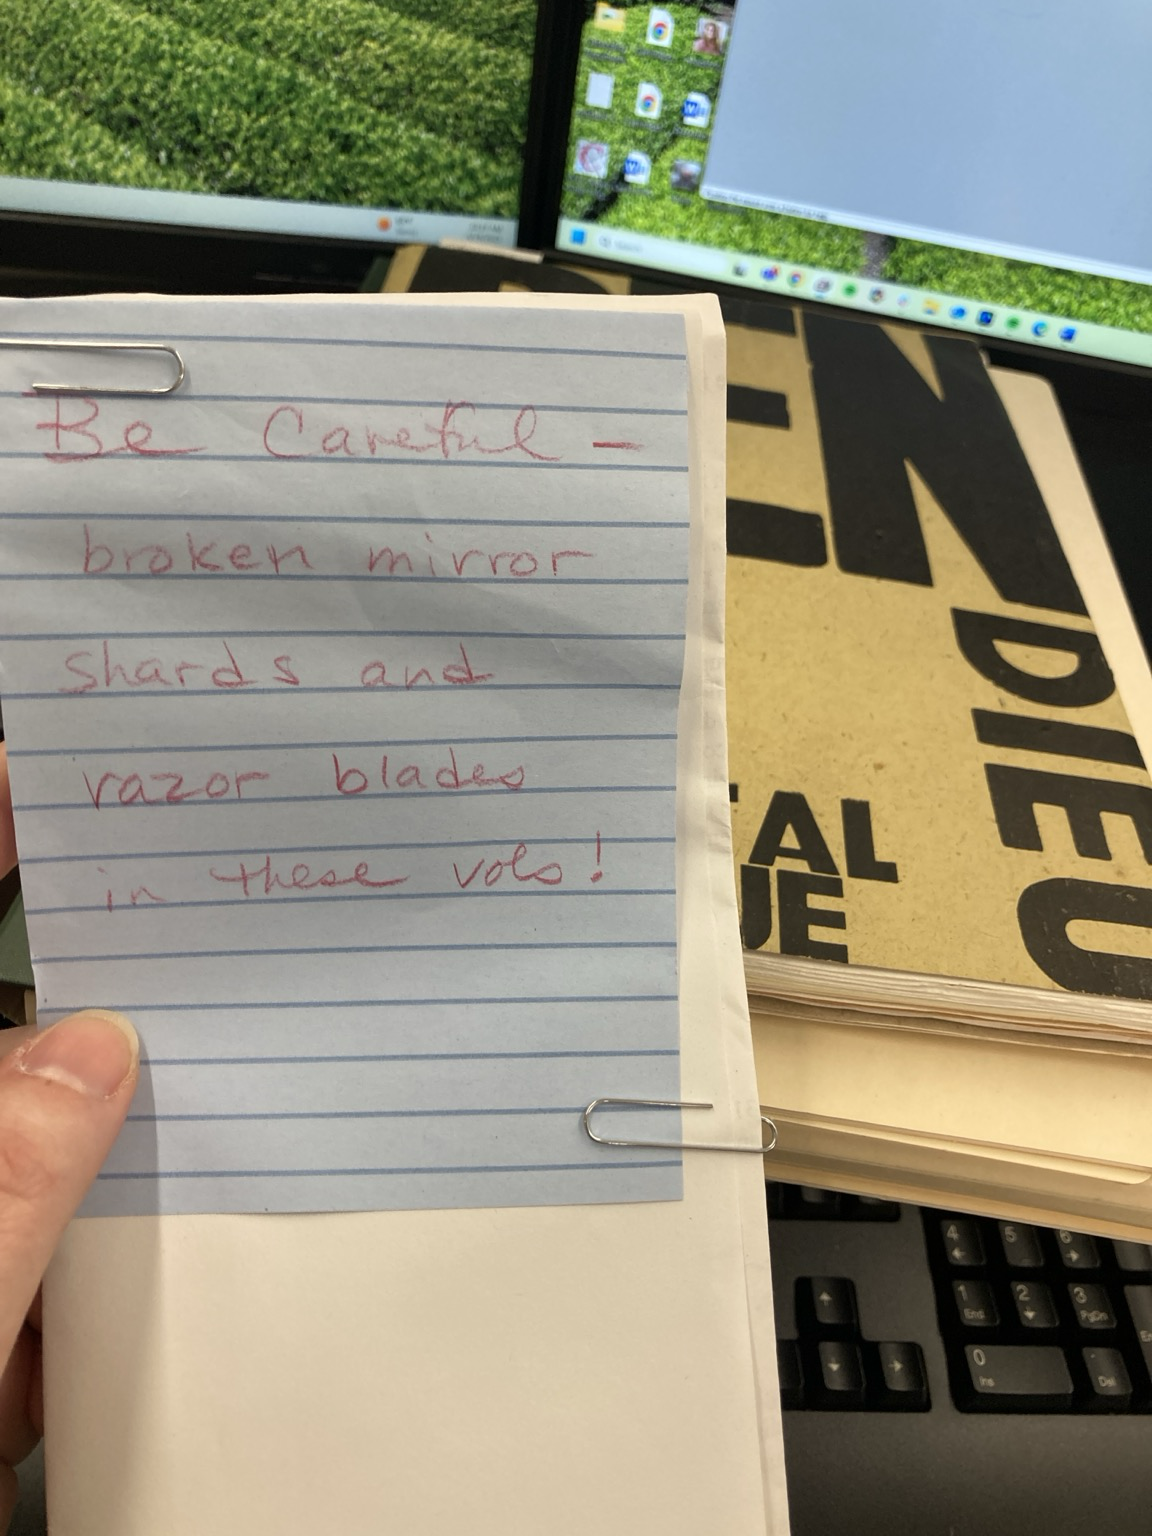 Be Careful -
broken mirror
shards and
razor blades
in these vols!
EN
DIEU
TAL
UE
4
5
6
1
End
2
3
PgDn
0
Ins
Del